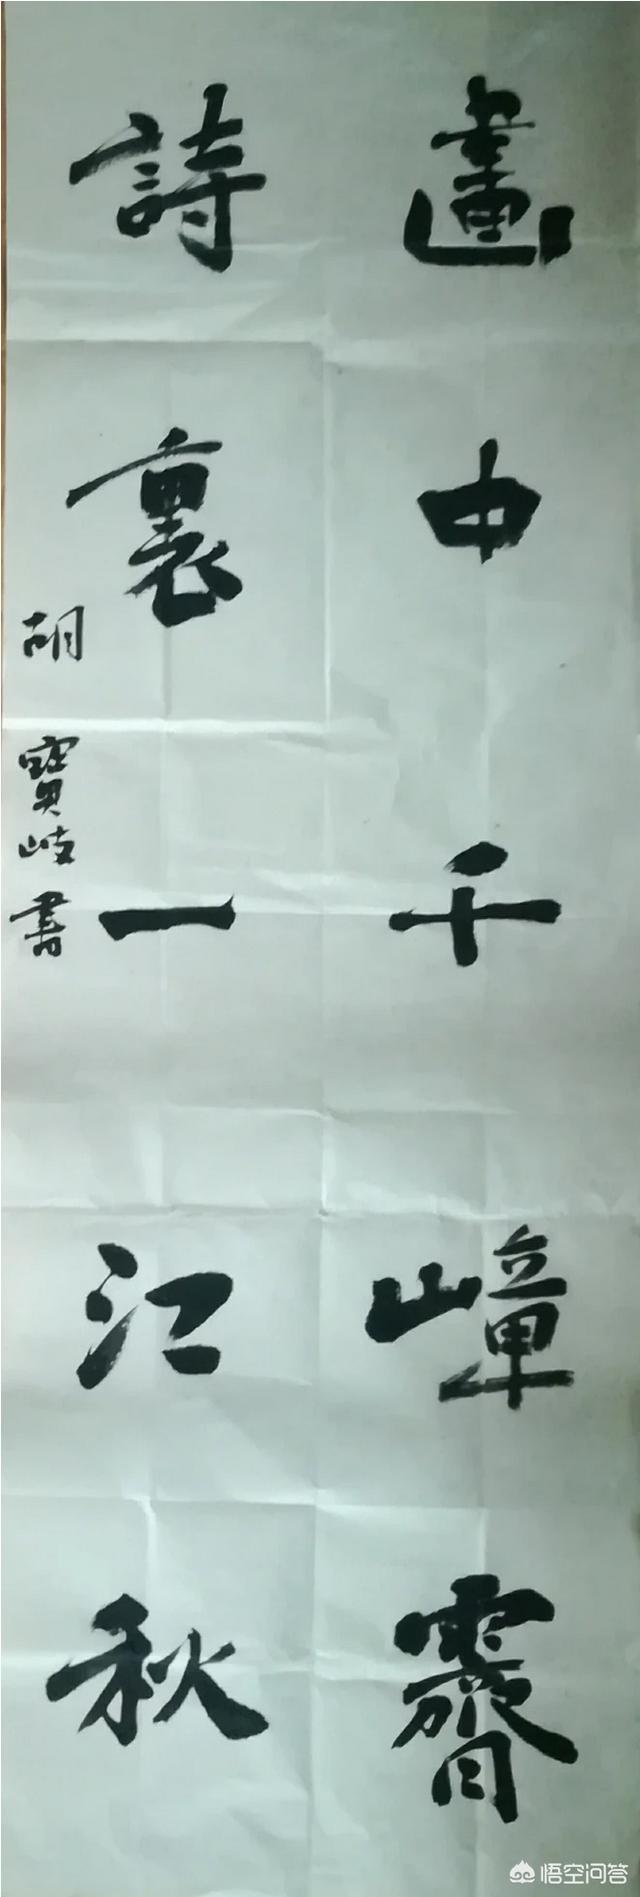 畫中千嶂霽
詩裏一江秋
胡寶岐書
悟空问答